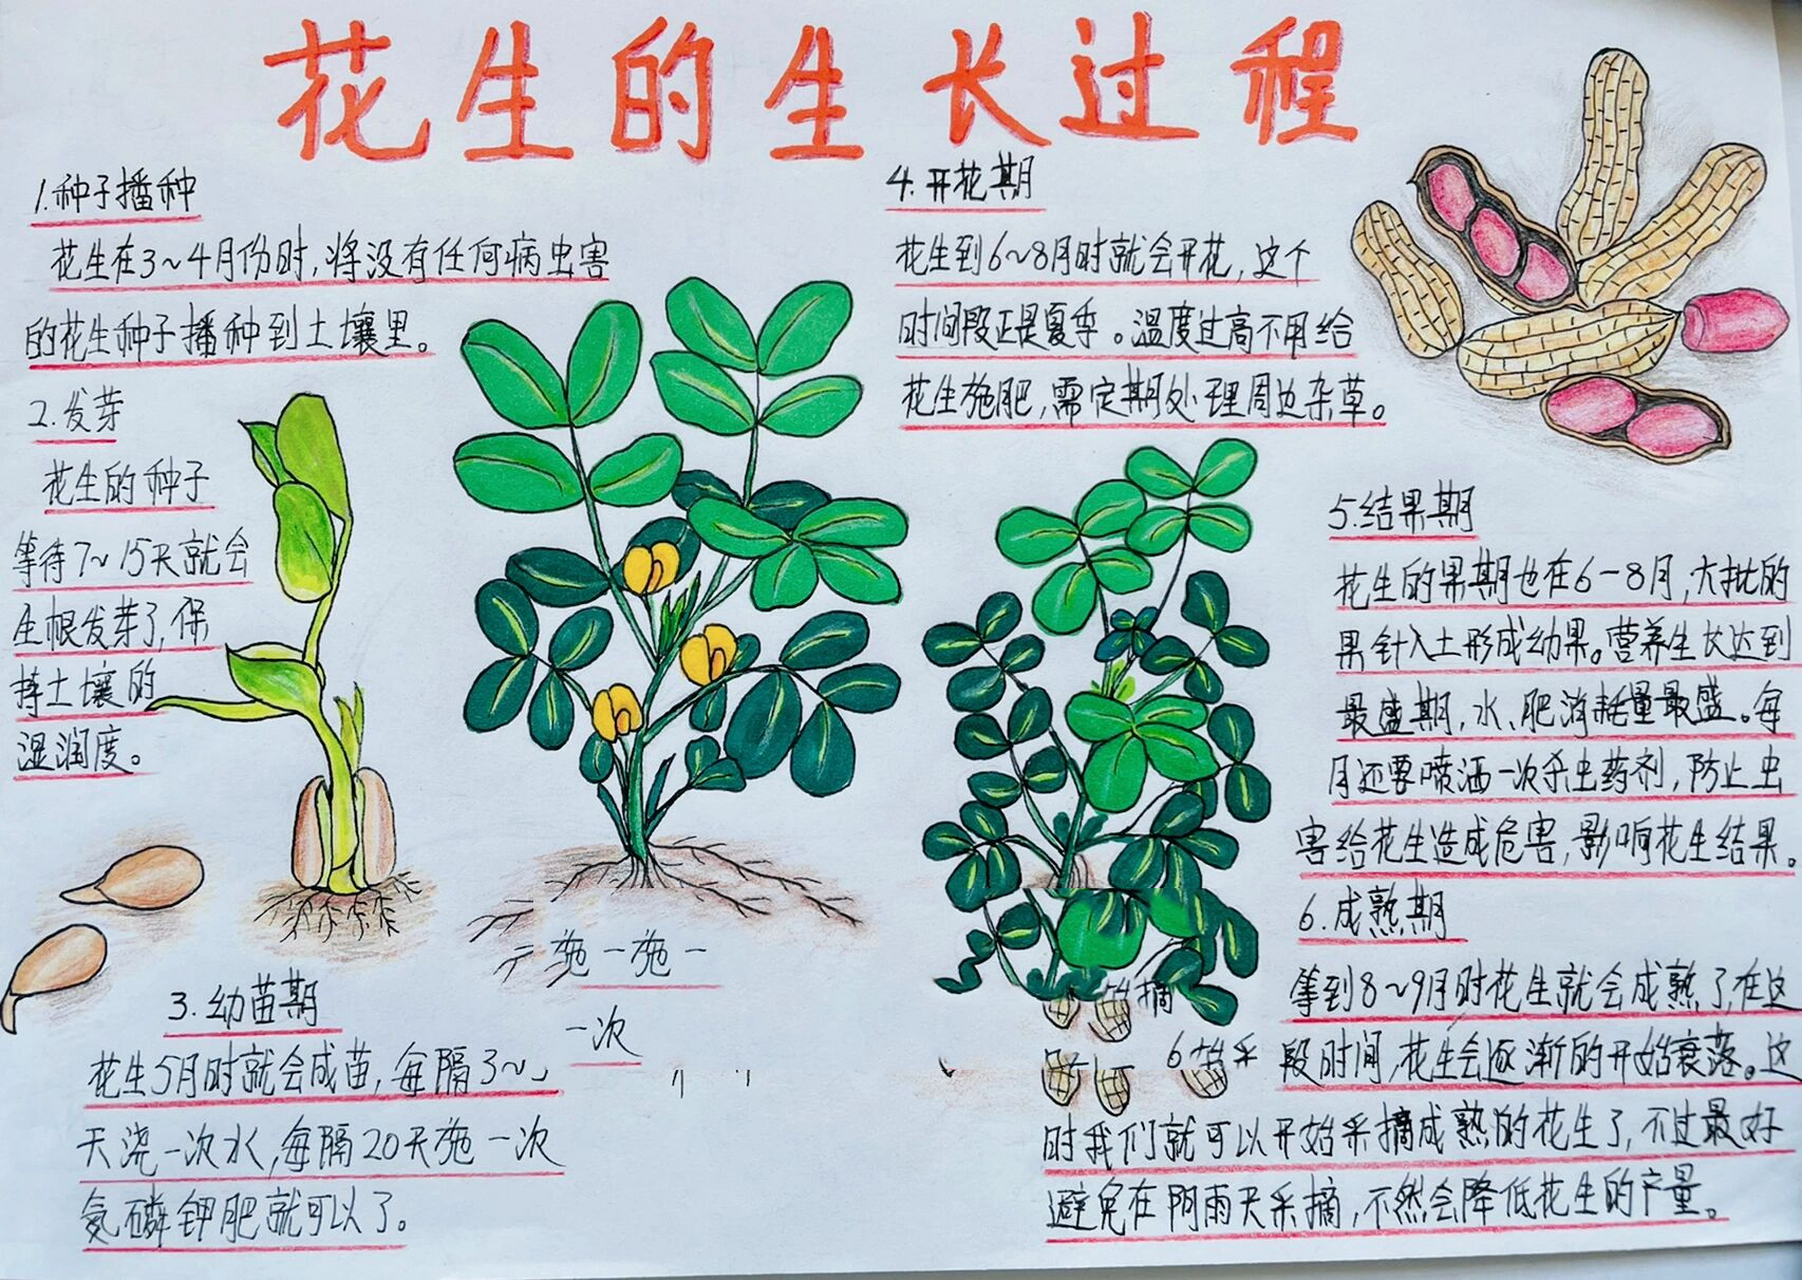 花生的生长过程
1.种子播种
花生在3~4月份时,将没有任何病虫害
的花生种子播种到土壤里。
2.发芽
花生的种子
等待7~15天就会
生根发芽了,保
持土壤的
湿润度。
3.幼苗期
花生5月时就会成苗,每隔3~
天浇一次水,每隔20天施一次
氨磷钾肥就可以了。
施一施一
一次
4.开花期
花生到6~8月时就会开花,这个
时间段正是夏季。温度过高不用给
花生施肥,需定期处理周边杂草。
5.结果期
花生的果期也在6-8月,大批的
果针入土形成幼果。营养生长达到
最盛期,水、肥消耗量最盛。每
月还要喷洒一次杀虫药剂,防止虫
害给花生造成危害,影响花生结果。
6.成熟期
等到8~9月时花生就会成熟了,在这
段时间,花生会逐渐的开始衰落。这
时我们就可以开始采摘成熟的花生了,不过最好
避免在阴雨天采摘,不然会降低花生的产量。
摘
6 始采